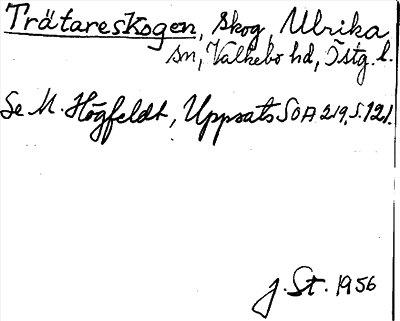 Trätareskogen, skog, Ulrika
sn, Valkebo hd, Östg. l.
Se M. Högfeldt, Uppsats SOA 219, s. 121.
J. St. 1956